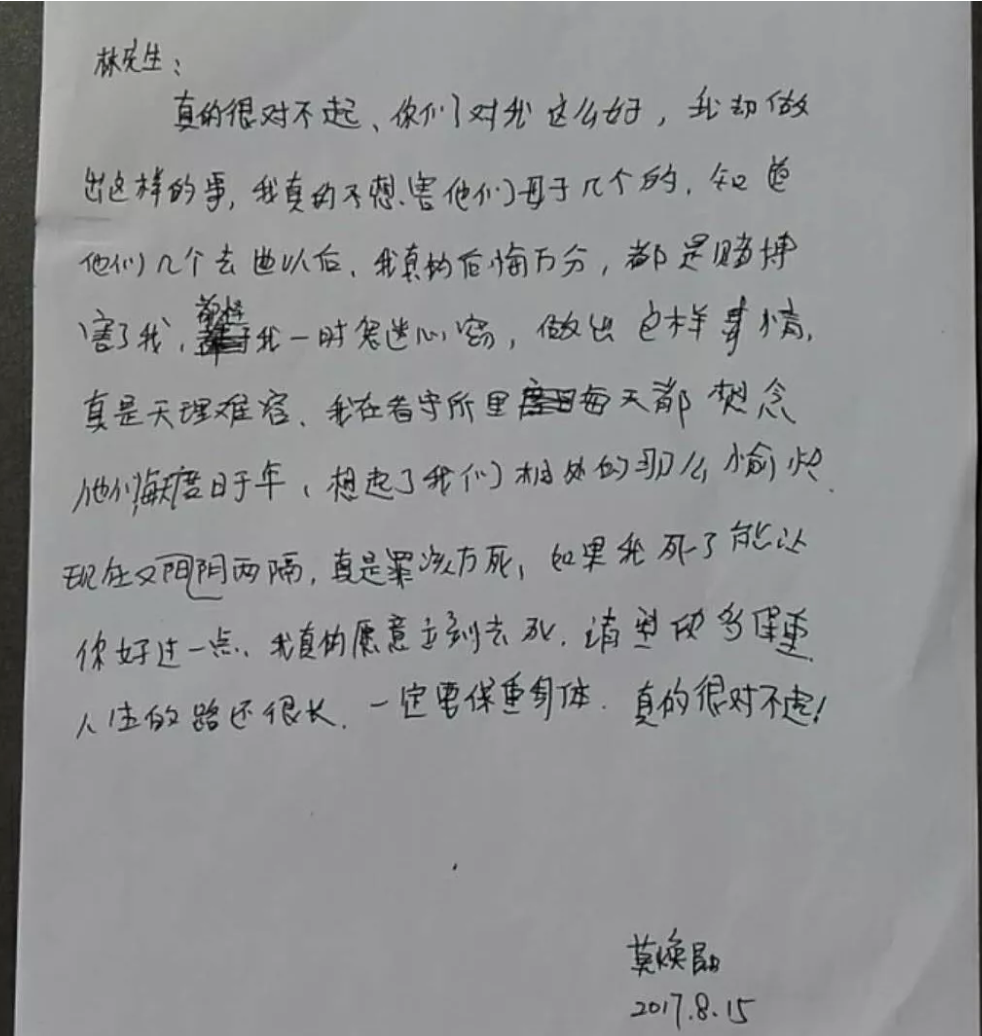 林先生：
真的很对不起、你们对我这么好，我却做
出这样的事，我真的不想害他们母子几个的，知道
他们几个去世以后、我真的后悔万分，都是赌博
害了我，都怪我一时鬼迷心窍，做出这样事情，
真是天理难容、我在看守所里每天都想念
他们每天度日于年、想起了我们相处的那么愉快、
现在又阴阳两隔，真是罪该万死，如果我死了能让
你好过一点、我真的愿意立刻去死，请 多保重
人生的路还很长，一定要保重身体. 真的很对不起！
莫焕晶
2017.8.15